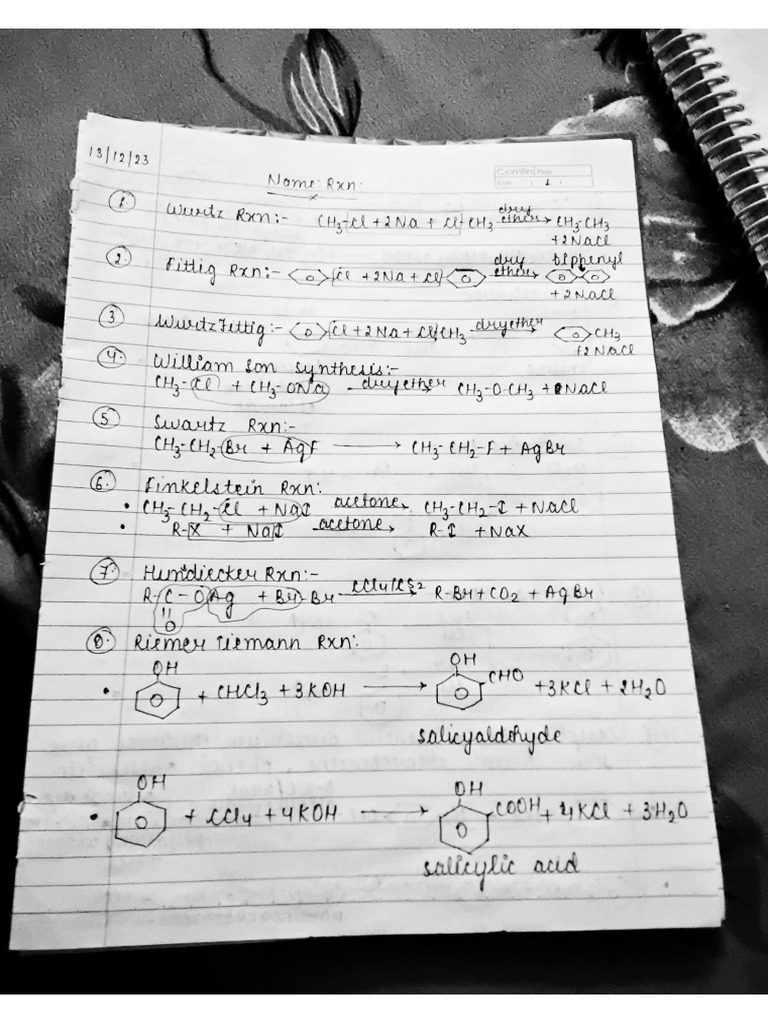 13/12/23
Camlin Page
Date / 1 /
Name: Rxn:
1. Wurtz Rxn:- CH3-Cl + 2Na + Cl-CH3 dry ether → CH3-CH3
+ 2NaCl
2. Fittig Rxn:- Cl + 2Na + Cl dry ether → biphenyl
+ 2NaCl
3 Wurtz Fittig:- Cl + 2Na + Cl CH3 dry ether → CH3
+2NaCl
4. William Son Synthesis:-
CH3-Cl + CH3-ONa dry ether → CH3-O-CH3 + NaCl
5. Swartz Rxn:-
CH3-CH2-Br + AgF → CH3-CH2-F + AgBr
6. Finkelstein Rxn:
• CH3-CH2-Cl + NaI acetone → CH3-CH2-I + NaCl
• R-X + NaI acetone → R-I + NaX
7. Hundiecker Rxn:-
R-C-OAg + Br-Br CCl4/CS2 → R-Br + CO2 + AgBr
O
8. Riemer Tiemann Rxn:
OH OH
• + CHCl3 + 3KOH → CHO + 3KCl + 2H2O
Salicyaldehyde
OH OH
• + CCl4 + 4KOH → COOH + 4KCl + 3H2O
Salicylic acid